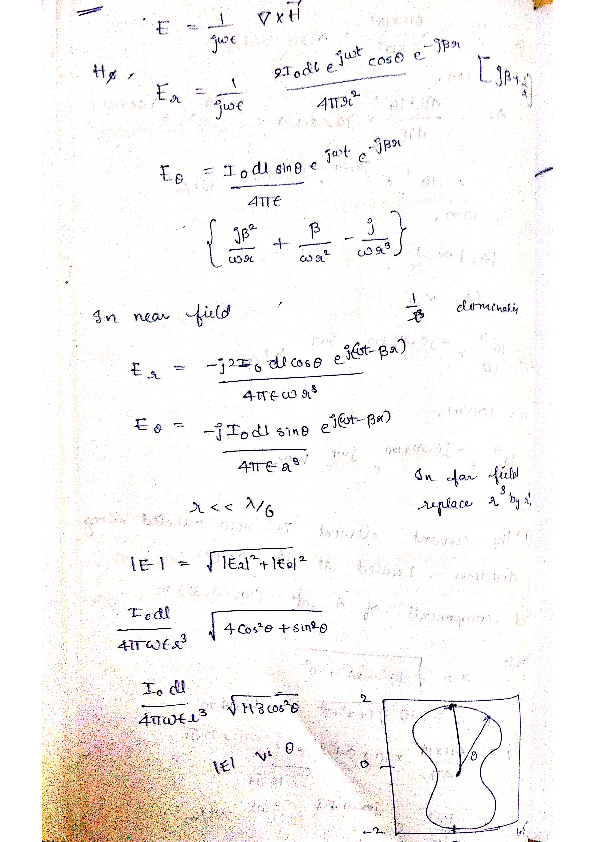 E = 1/jωϵ ∇×H⃗
Hø,
E_r = 1/jωϵ 2I_0dl e^{jωt} cosθ e^{-jβr} / 4πr² [jβ+
E_θ = I_0 dl sinθ e^{jωt} e^{-jβr} / 4πϵ
{ jβ²/ωr + β/ωr² - j/ωr³ }
In near field
E_r = -j2I_0 dl cosθ e^{j(ωt-βr)} / 4πϵωr³
E_θ = -jI_0dl sinθ e^{j(ωt-βr)} / 4πϵ r³
In far field
r << λ/6 replace r³ by
|E| = √|E_r|²+|E_θ|²
I_0dl / 4πωϵr³ √4cos²θ + sin²θ
I_0 dl / 4πωϵr³ √1+3cos²θ
|E| vs θ
2
0
θ
-2